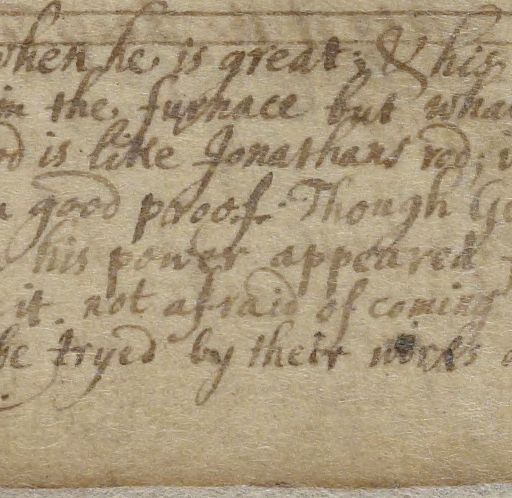 when he is great; & his
in the furnace but what
od is like Jonathans rod; i
good proof. Though Go
his power appeared
it not afraid of coming
be tryed by their works